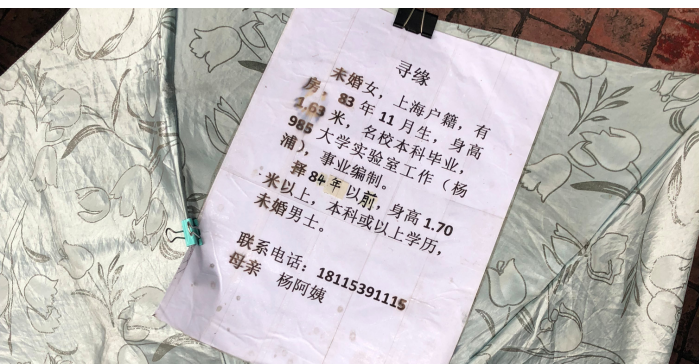 寻缘
未婚女，上海户籍，有
房，83年11月生，身高
1.63米，名校本科毕业，
985大学实验室工作（杨
浦），事业编制。
择84年以前，身高1.70
米以上，本科或以上学历，
未婚男士。
联系电话：18115391115
母亲 杨阿姨